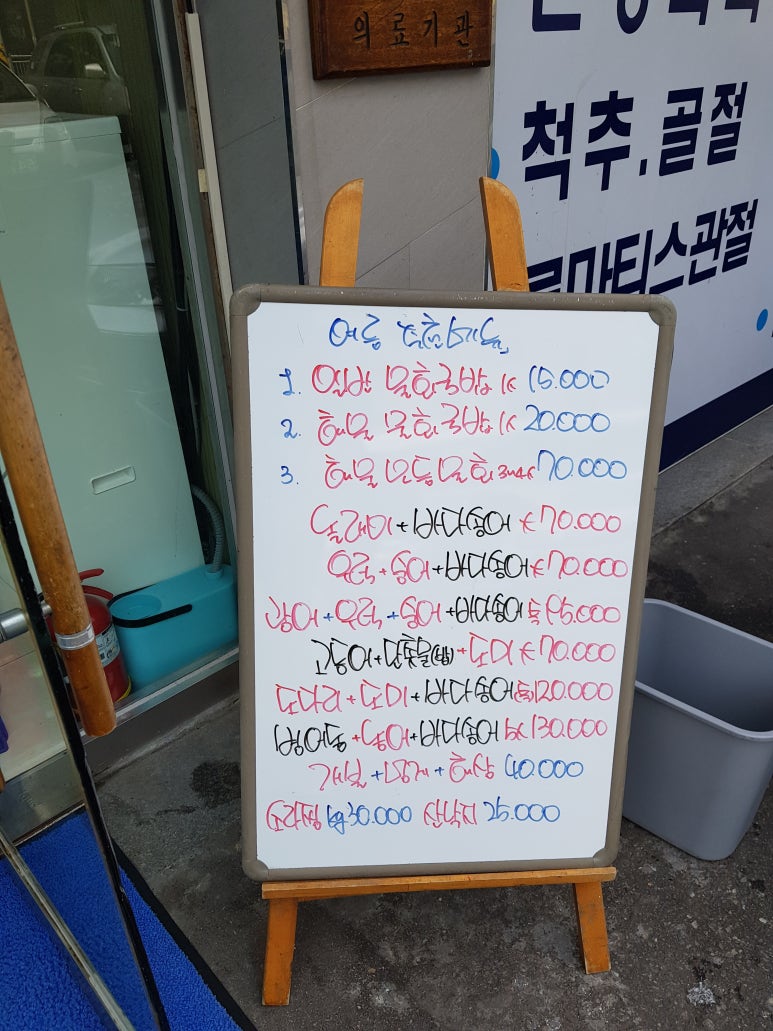 의료기관
척추.골절
류마티스관절
여름 특선메뉴
1. 일반 물회국밥 15.000
2. 해물 물회국밥 20.000
3. 해물 모듬물회 70.000
놀래미+바다송어 70.000
우럭+숭어+바다송어 70.000
광어+우럭+숭어+바다송어 특 95.000
고등어+단홋물(뱀)+도미 70.000
도다리+도미+바다송어 특 120.000
병어돔+농어+바다송어 130.000
개불+멍게+해삼 40.000
소라찜 kg 30.000 산낙지 25.000